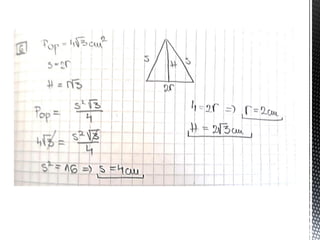 6
Pop = 4√3 cm²
s = 2r
H = r√3
Pop = s²√3 / 4
4√3 = s²√3 / 4
s² = 16 => s = 4cm
s H s
2r
4 = 2r => r = 2cm
H = 2√3 cm